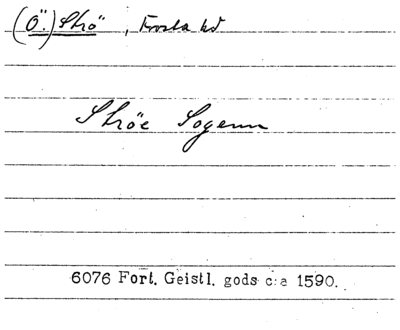 (Ö.) Strö, Frosta hd
Ströe Sogenn
6076 Fort. Geistl. gods c:a 1590.